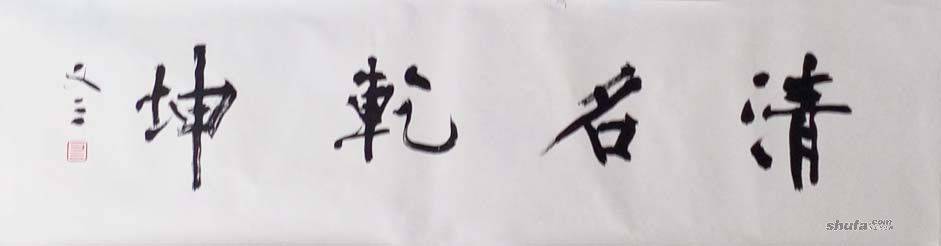 清名乾坤
shufa.com